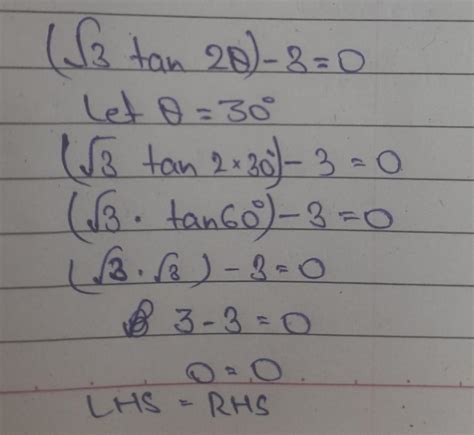 (√3 tan 2θ) - 3 = 0
Let θ = 30°
(√3 tan 2×30°) - 3 = 0
(√3 · tan60°) - 3 = 0
(√3 · √3) - 3 = 0
3 - 3 = 0
0 = 0
LHS = RHS